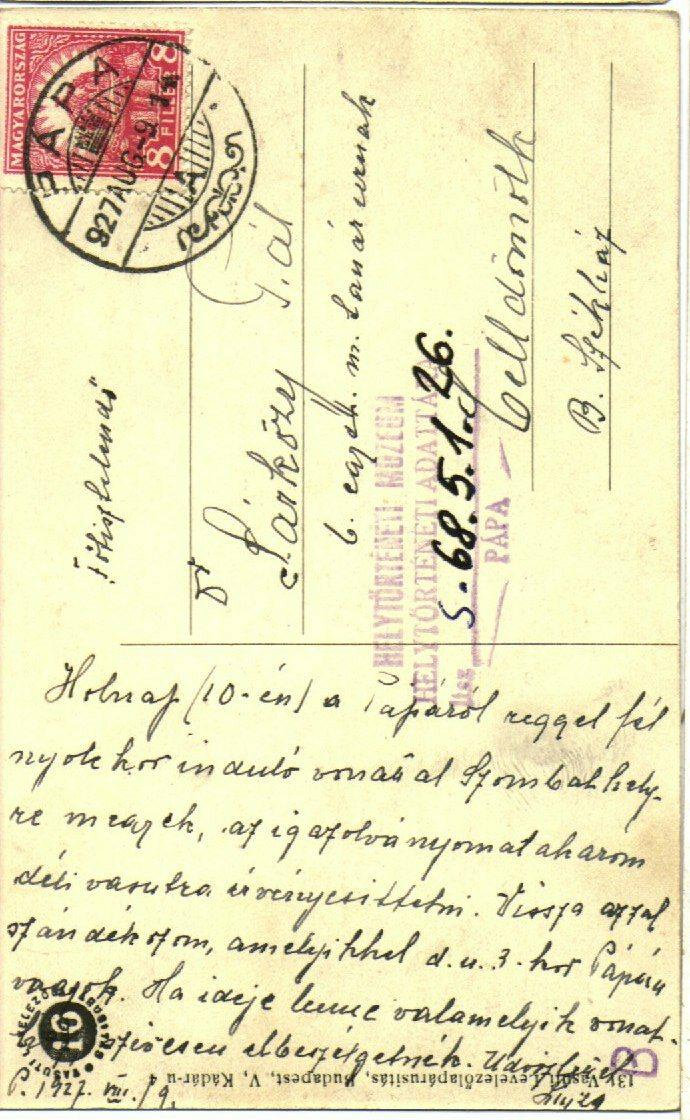 MAGYARORSZÁG
8 FILLÉR 8
PÁPA
927 AUG -9
A
"Főtisztelendő"
Dr Sárközy Pál
b. egyh. m. tanár urnak
Celldömölk
B. Székház
HELYTÖRTÉNETI MUZEUM
HELYTÖRTÉNETI ADATTÁRA
S-68.5.1. 26.
ltsz
PÁPA
Holnap (10-én) a Pápáról reggel fél
nyolckor induló vonattal Szombathely-
re megyek, az igazolványomat akarom
déli vasutra érvényesittetni. Vissza azzal
szándékszom, amelyikkel d.u. 3-kor Pápán
vagyok. Ha ideje lenne valamelyik vonat-
szivesen elbeszélgetnék. Üdvözlettel
P. 1927. VIII./9.
B
Vasúti Levelezőlapárusítás, Budapest, V, Kádár-u 4